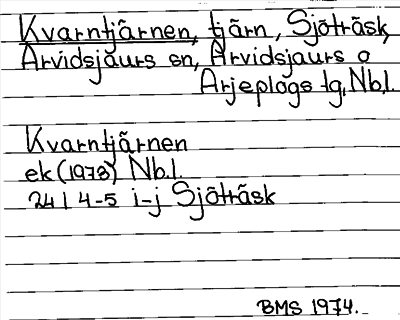 Kvarntjärnen, tjärn, Sjöträsk,
Arvidsjaurs sn, Arvidsjaurs o
Arjeplogs tg, Nb.l.
Kvarntjärnen
ek (1978) Nb.l.
24 I 4-5 i-j Sjöträsk
BMS 1974.